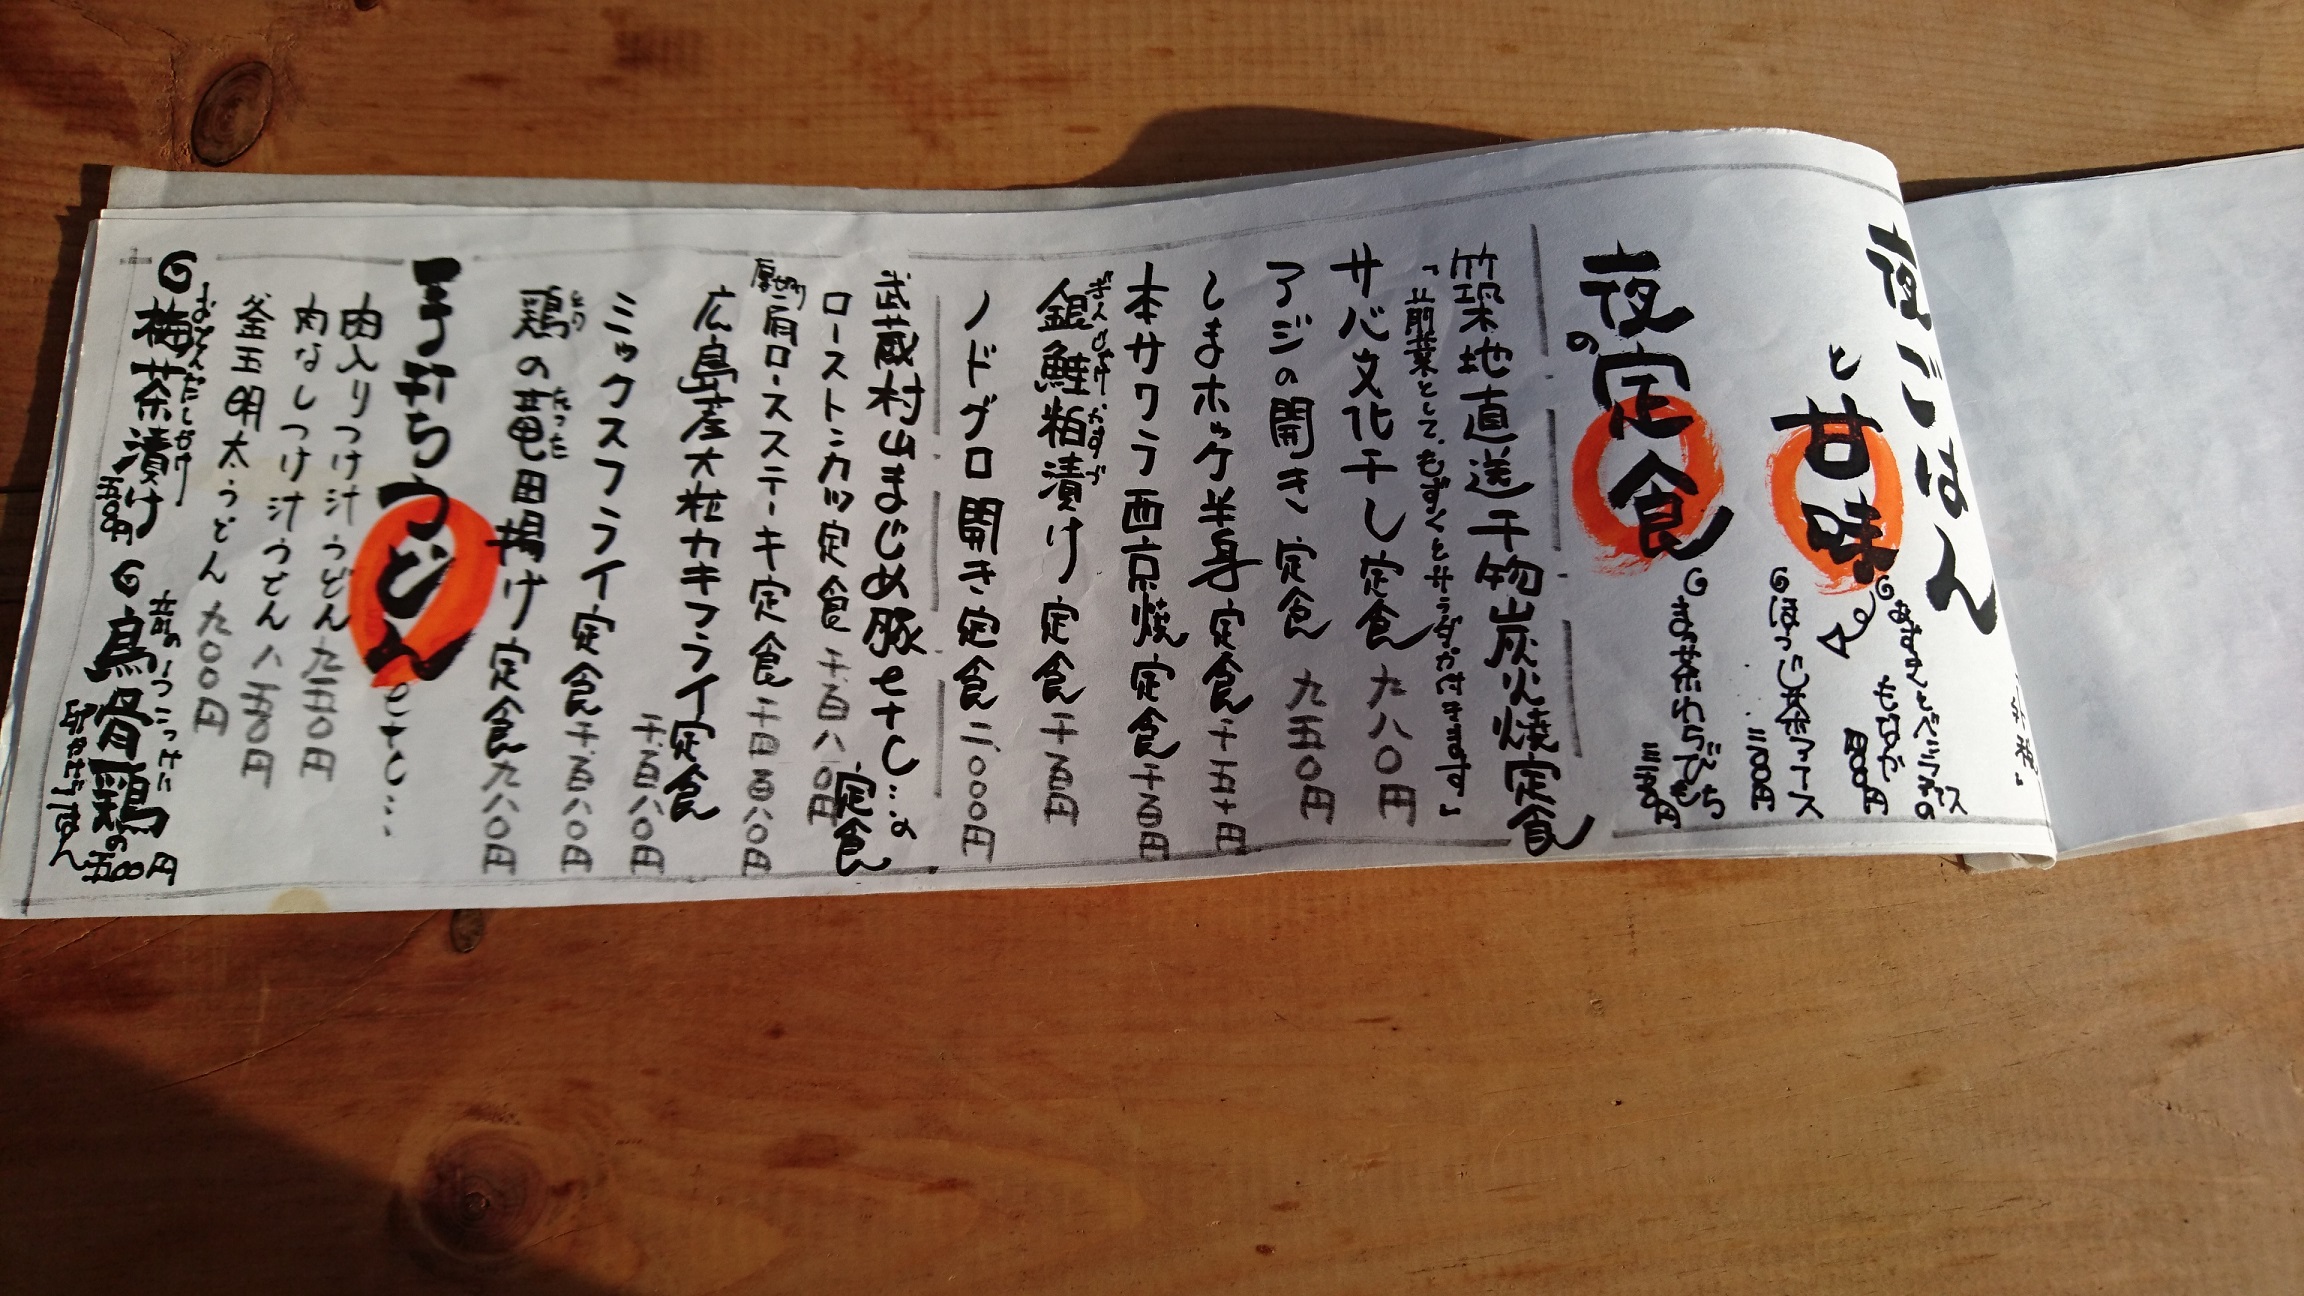 夜ごはん
と甘味
あずきとバニラアイスの
もなか
四〇〇円
ほうじ茶アイス
三〇〇円
まっ茶わらびもち
三五〇円
夜の定食
築地直送干物炭火焼定食
「前菜として、もずくとサラダが付きます」
サバ文化干し定食 九八〇円
アジの開き定食 九五〇円
しまホッケ半身定食 千五十円
本サワラ西京焼定食 千百円
銀鮭粕漬け定食 千百円
ぎんじゃけかすづ
ノドグロ開き定食 二、〇〇〇円
武蔵村山まじめ豚 etc…の定食
ローストンカツ定食 千、百八〇円
厚切り肩ロースステーキ定食 千四百八〇円
広島産大粒カキフライ定食
千、百八〇円
ミックスフライ定食 千、百八〇円
鶏の竜田揚げ定食 九八〇円
とり たつた
手打ちうどん etc…
肉入りつけ汁うどん 九五〇円
肉なしつけ汁うどん 八五〇円
釜玉明太うどん 九〇〇円
おどんだしがけ
梅茶漬け
五〇〇円
烏骨鶏の
卵かけごはん
五〇〇円